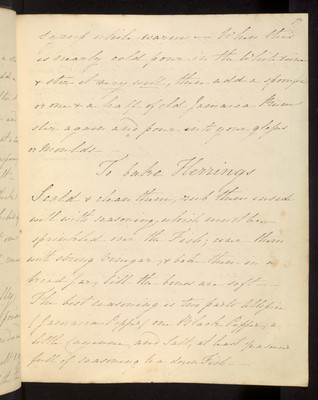 Syrup while warm — When this
is nearly cold pour in the White Wine
& stir it very well, then add a spoonful
or one & a half of old Jamaica Rum
stir again and pour into your glasses
or Moulds —
To bake Herrings
Scald & clean them, rub them inside
well with seasoning, which must be
sprinkled over the Fish; cover them
with strong Vinegar, & bake them in a
bread Jar, till the bones are soft —
The best seasoning is two parts Allspice
(Jamaica Pepper) one Black Pepper, a
little Cayenne, and Salt, at least
full of seasoning to a dozen Fish —